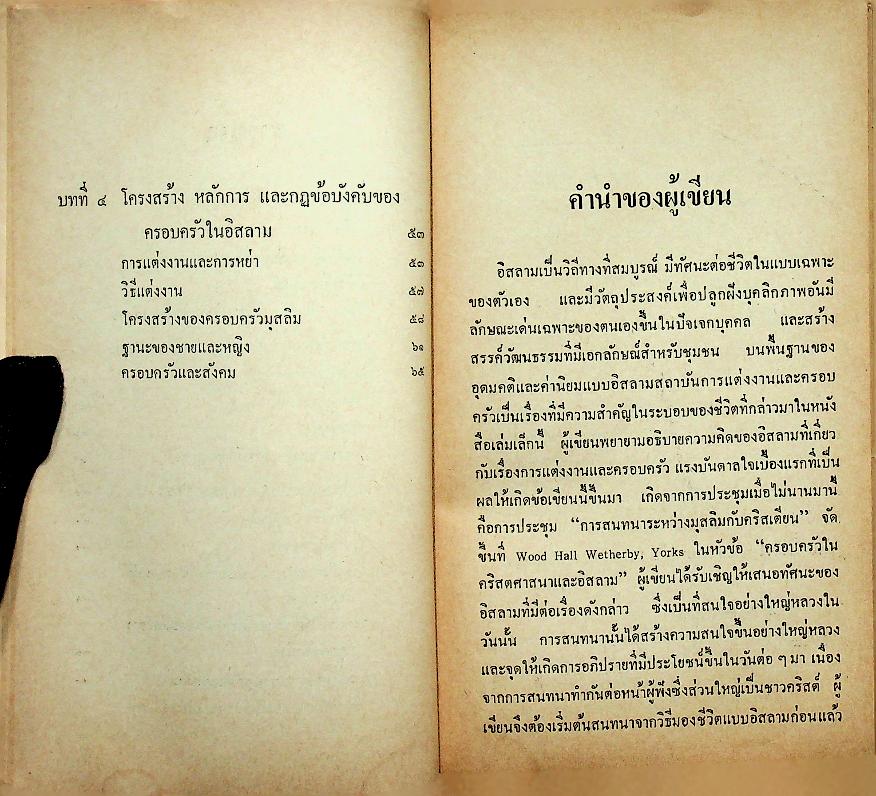 บทที่ ๔ โครงสร้าง หลักการ และกฏข้อบังคับของ
ครอบครัวในอิสลาม ๕๓
การแต่งงานและการหย่า ๕๓
วิธีแต่งงาน ๕๗
โครงสร้างของครอบครัวมุสลิม ๕๘
ฐานะของชายและหญิง ๖๑
ครอบครัวและสังคม ๖๕
คำนำของผู้เขียน
อิสลามเป็นวิถีทางที่สมบูรณ์ มีทัศนะต่อชีวิตในแบบเฉพาะ
ของตัวเอง และมีวัตถุประสงค์เพื่อปลูกฝังบุคลิกภาพอันมี
ลักษณะเด่นเฉพาะของตนเองขึ้นในปัจเจกบุคคล และสร้าง
สรรค์วัฒนธรรมที่มีเอกลักษณ์สำหรับชุมชน บนพื้นฐานของ
อุดมคติและค่านิยมแบบอิสลามสถาบันการแต่งงานและครอบ
ครัวเป็นเรื่องที่มีความสำคัญในระบอบของชีวิตที่กล่าวมาในหนัง
สือเล่มเล็กนี้ ผู้เขียนพยายามอธิบายความคิดของอิสลามที่เกี่ยว
กับเรื่องการแต่งงานและครอบครัว แรงบันดาลใจเบื้องแรกที่เป็น
ผลให้เกิดข้อเขียนนี้ขึ้นมา เกิดจากการประชุมเมื่อไม่นานมานี้
คือการประชุม “การสนทนาระหว่างมุสลิมกับคริสเตียน” จัด
ขึ้นที่ Wood Hall Wetherby, Yorks ในหัวข้อ “ครอบครัวใน
คริสตศาสนาและอิสลาม” ผู้เขียนได้รับเชิญให้เสนอทัศนะของ
อิสลามที่มีต่อเรื่องดังกล่าว ซึ่งเป็นที่สนใจอย่างใหญ่หลวงใน
วันนั้น การสนทนานั้นได้สร้างความสนใจขึ้นอย่างใหญ่หลวง
และจุดให้เกิดการอภิปรายที่มีประโยชน์ขึ้นในวันต่อ ๆ มา เนื่อง
จากการสนทนาทำกันต่อหน้าผู้ฟังซึ่งส่วนใหญ่เป็นชาวคริสต์ ผู้
เขียนจึงต้องเริ่มต้นสนทนาจากวิธีมองชีวิตแบบอิสลามก่อนแล้ว